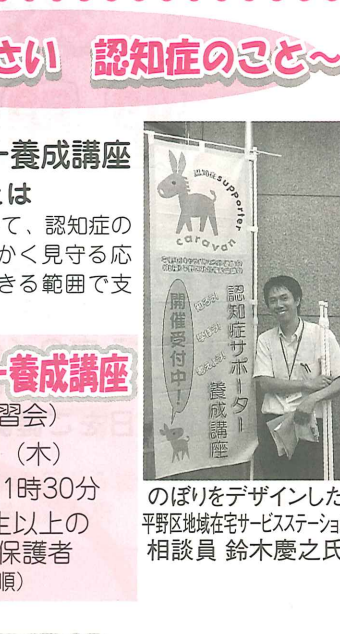 さい 認知症のこと～
ー養成講座
とは
て、認知症の
かく見守る応
きる範囲で支
ー養成講座
習会）
（木）
1時30分
生以上の
保護者
順）
認知症supporter
caravan
開催受付中！
認知症サポーター
養成講座
のぼりをデザインした
平野区地域在宅サービスステーショ
相談員 鈴木慶之氏